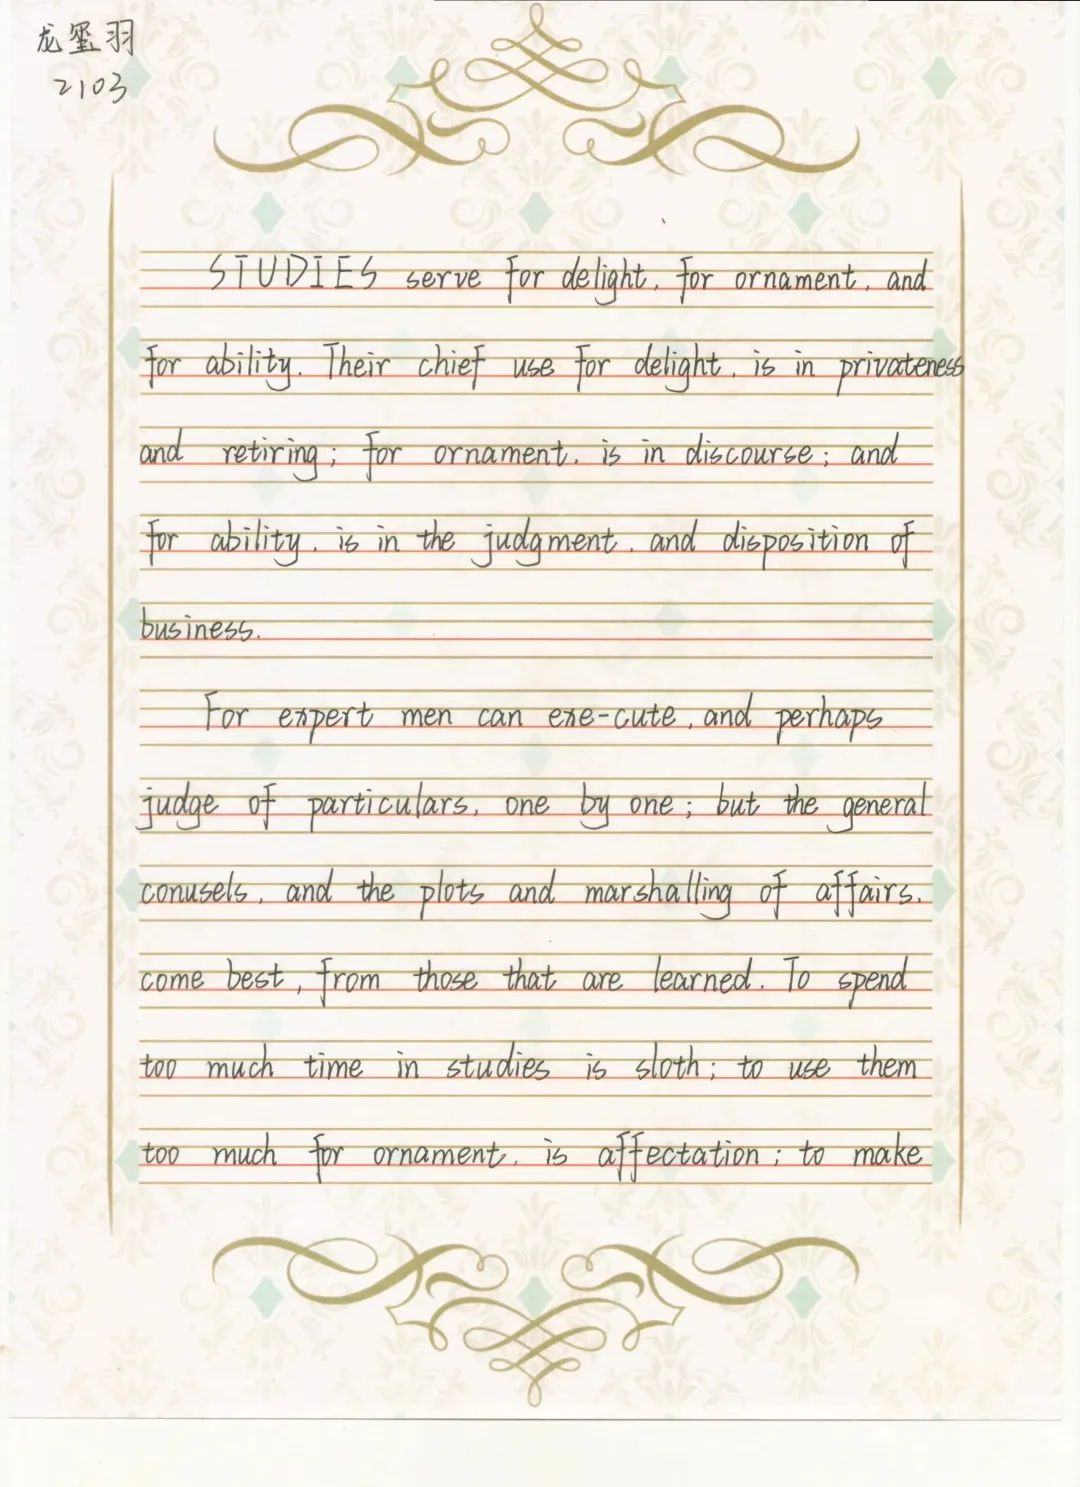 龙玺羽
2103
STUDIES serve for delight, for ornament, and
for ability. Their chief use for delight, is in privateness
and retiring; for ornament, is in discourse; and
for ability, is in the judgment, and disposition of
business.
For expert men can exe-cute, and perhaps
judge of particulars, one by one; but the general
conusels, and the plots and marshalling of affairs,
come best, from those that are learned. To spend
too much time in studies is sloth; to use them
too much for ornament, is affectation; to make